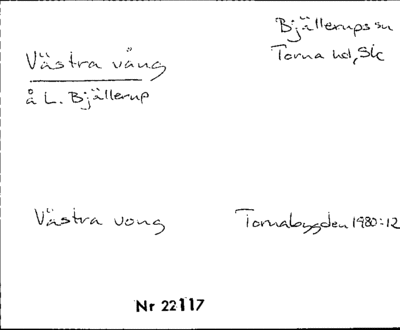 Bjällerups sn
Torna hd, Sk
Västra vång
å L. Bjällerup
Västra vong
Tornabygden 1980:12
Nr 22117